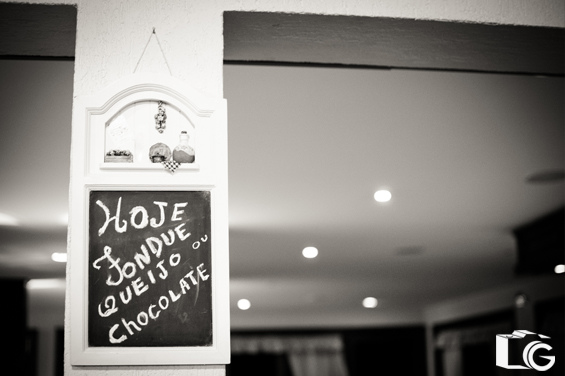 HOJE
FONDUE
QUEIJO OU
CHOCOLATE
LG